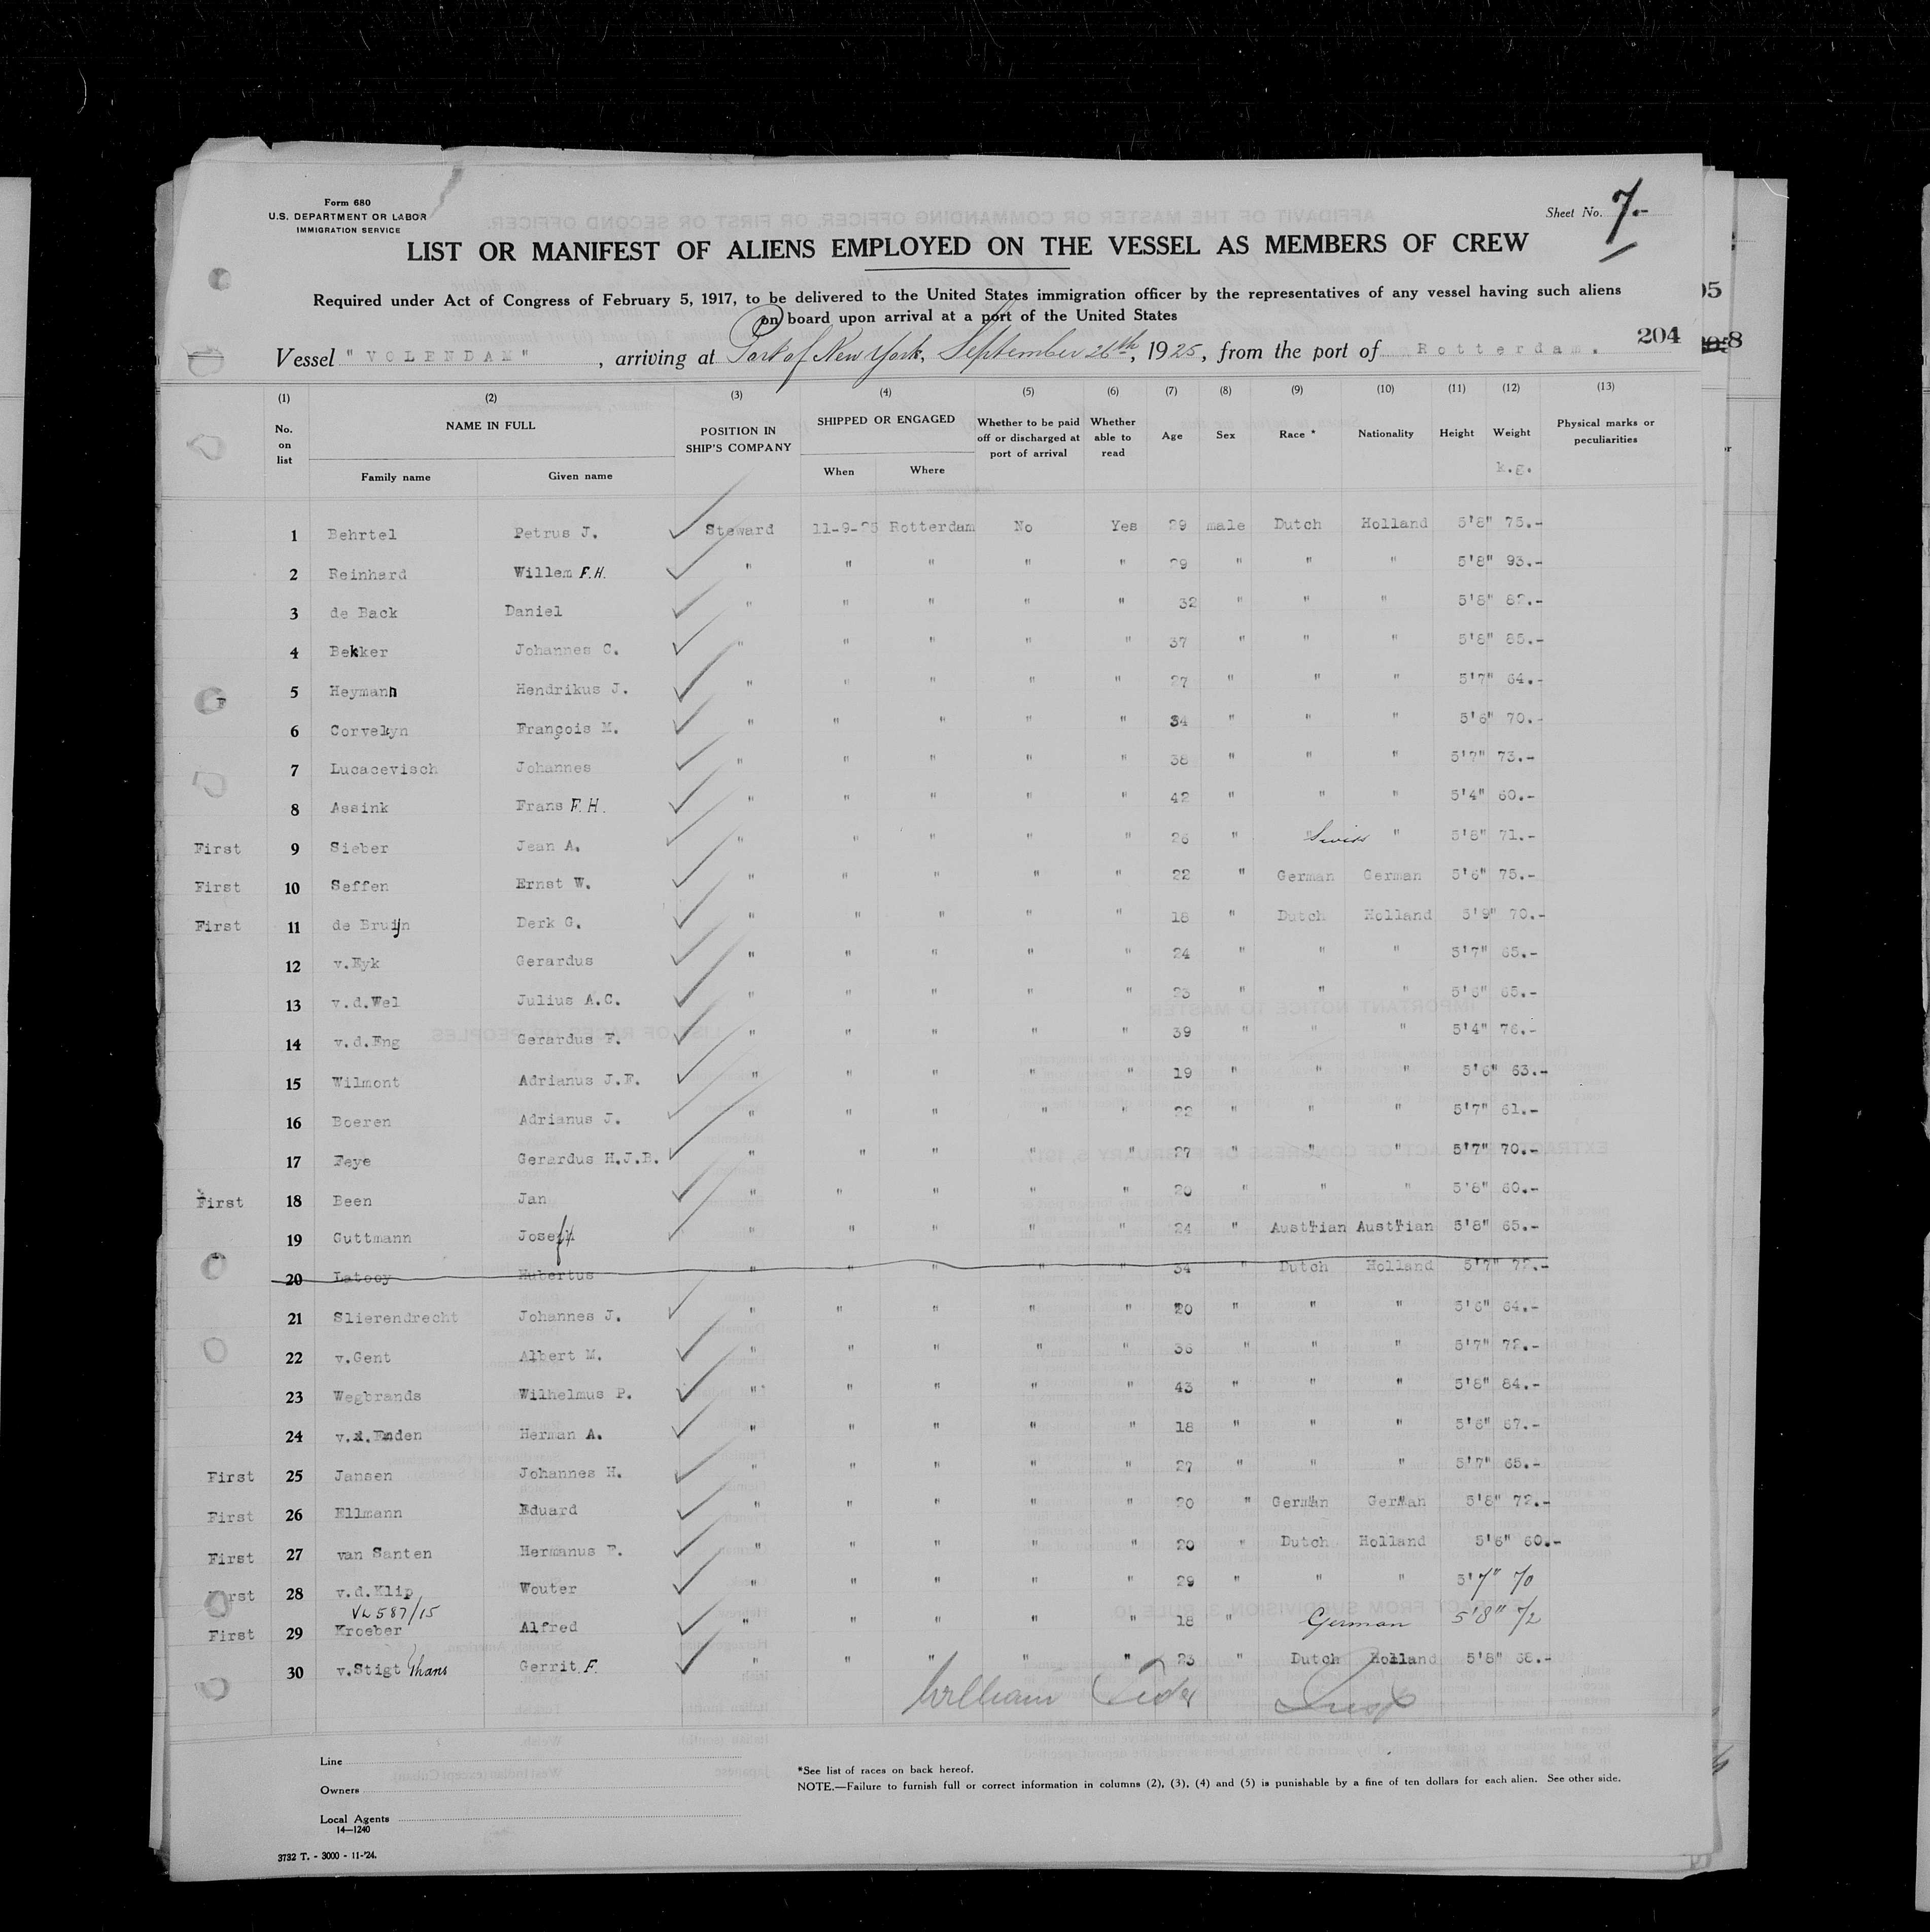 Form 680
U.S. DEPARTMENT OF LABOR
IMMIGRATION SERVICE
Sheet No. 7.-
LIST OR MANIFEST OF ALIENS EMPLOYED ON THE VESSEL AS MEMBERS OF CREW
Required under Act of Congress of February 5, 1917, to be delivered to the United States immigration officer by the representatives of any vessel having such aliens
on board upon arrival at a port of the United States
204
Vessel "VOLENDAM", arriving at Port of New York, September 26th, 1925, from the port of Rotterdam.
(1) (2) (3) (4) (5) (6) (7) (8) (9) (10) (11) (12) (13)
No. on list NAME IN FULL Family name Given name POSITION IN SHIP'S COMPANY SHIPPED OR ENGAGED When Where Whether to be paid off or discharged at port of arrival Whether able to read Age Sex Race * Nationality Height Weight k.g. Physical marks or peculiarities
1 Behrtel Petrus J. Steward 11-9-25 Rotterdam No Yes 29 male Dutch Holland 5'8" 75.-
2 Reinhard Willem F.H. " " " " " 29 " " " 5'8" 93.-
3 de Back Daniel " " " " " 32 " " " 5'8" 82.-
4 Bekker Johannes C. " " " " " 37 " " " 5'8" 85.-
5 Heymann Hendrikus J. " " " " " 27 " " " 5'7" 64.-
6 Corvelyn François M. " " " " " 34 " " " 5'6" 70.-
7 Lucacevisch Johannes " " " " " 38 " " " 5'7" 73.-
8 Assink Frans F.H. " " " " " 42 " " " 5'4" 60.-
First 9 Sieber Jean A. " " " " " 26 " Swiss " 5'8" 71.-
First 10 Seffen Ernst W. " " " " " 22 " German German 5'6" 75.-
First 11 de Bruijn Derk G. " " " " " 18 " Dutch Holland 5'9" 70.-
12 v.Eyk Gerardus " " " " " 24 " " " 5'7" 65.-
13 v.d.Wel Julius A.C. " " " " " 23 " " " 5'6" 65.-
14 v.d.Eng Gerardus F. " " " " " 39 " " " 5'4" 76.-
15 Wilmont Adrianus J.F. " " " " " 19 " " " 5'6" 63.-
16 Boeren Adrianus J. " " " " " 22 " " " 5'7" 61.-
17 Feye Gerardus H.J.B. " " " " " 27 " " " 5'7" 70.-
First 18 Been Jan " " " " " 20 " " " 5'8" 60.-
19 Guttmann Josef " " " " " 24 " Austrian Austrian 5'8" 65.-
20 Latooy Hubertus " " " " " 34 " Dutch Holland 5'7" 72.-
21 Slierendrecht Johannes J. " " " " " 20 " " " 5'6" 64.-
22 v.Gent Albert M. " " " " " 36 " " " 5'7" 72.-
23 Wegbrands Wilhelmus P. " " " " " 43 " " " 5'8" 84.-
24 v.d.Enden Herman A. " " " " " 18 " " " 5'6" 67.-
First 25 Jansen Johannes H. " " " " " 27 " " " 5'7" 65.-
First 26 Ellmann Eduard " " " " " 20 " German German 5'8" 72.-
First 27 van Santen Hermanus F. " " " " " 20 " Dutch Holland 5'6" 60.-
First 28 v.d.Klip Wouter " " " " " 29 " " " 5'7" 70
587/15
First 29 Kroeber Alfred " " " " " 18 " German 5'8" 72
30 v.Stigt Thans Gerrit F. " " " " " 23 " Dutch Holland 5'8" 68.-
William
Line
Owners
Local Agents
14—1240
*See list of races on back hereof.
NOTE.—Failure to furnish full or correct information in columns (2), (3), (4) and (5) is punishable by a fine of ten dollars for each alien. See other side.
3732 T. - 3000 - 11-'24.